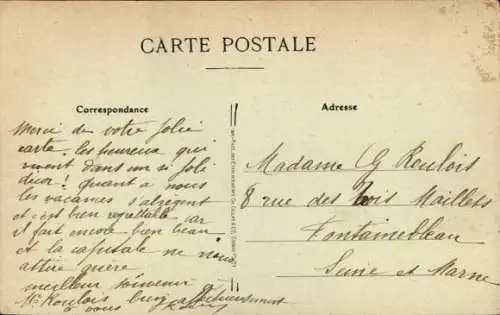 CARTE POSTALE
Correspondance
Adresse
Merci de votre jolie
carte. les heureux qui
vivent dans un si joli
décor ! Quant à nous
les vacances s'abrègent
et c'est bien regrettable car
il fait encore bien beau
et la capitale ne nous
attire guère
meilleur souvenir
Roulois bien affectueusement
à vous
Madame G Roulois
8 rue des Trois Maillets
Fontainebleau
Seine et Marne